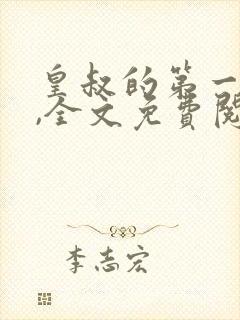 皇叔的第一
,全文免費閱
李志宏